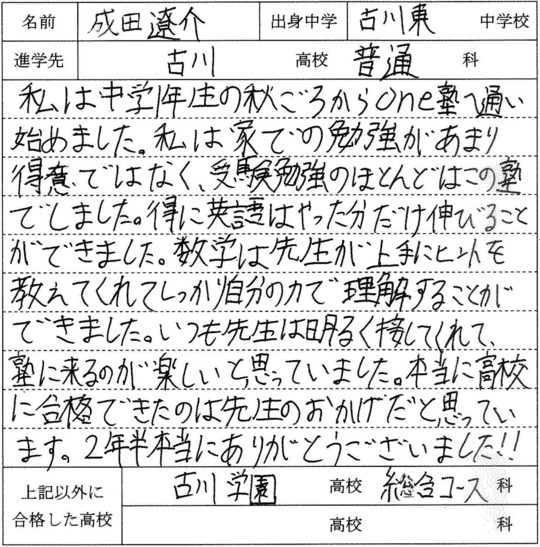 名前 成田遼介 出身中学 古川東 中学校
進学先 古川 高校 普通 科
私は中学1年生の秋ごろからone塾へ通い
始めました。私は家での勉強があまり
得意ではなく、受験勉強のほとんどはこの塾
でしました。得に英語はやった分だけ伸びること
ができました。数学は先生が上手にヒントを
教えてくれてしっかり自分の力で理解することが
できました。いつも先生は明るく接してくれて、
塾に来るのが楽しいと思っていました。本当に高校
に合格できたのは先生のおかげだと思ってい
ます。2年半本当にありがとうございました!!
上記以外に
合格した高校
古川学園 高校 総合コース 科
高校 科